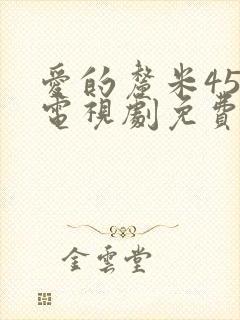 愛的釐米45
電視劇免費
金雲堂